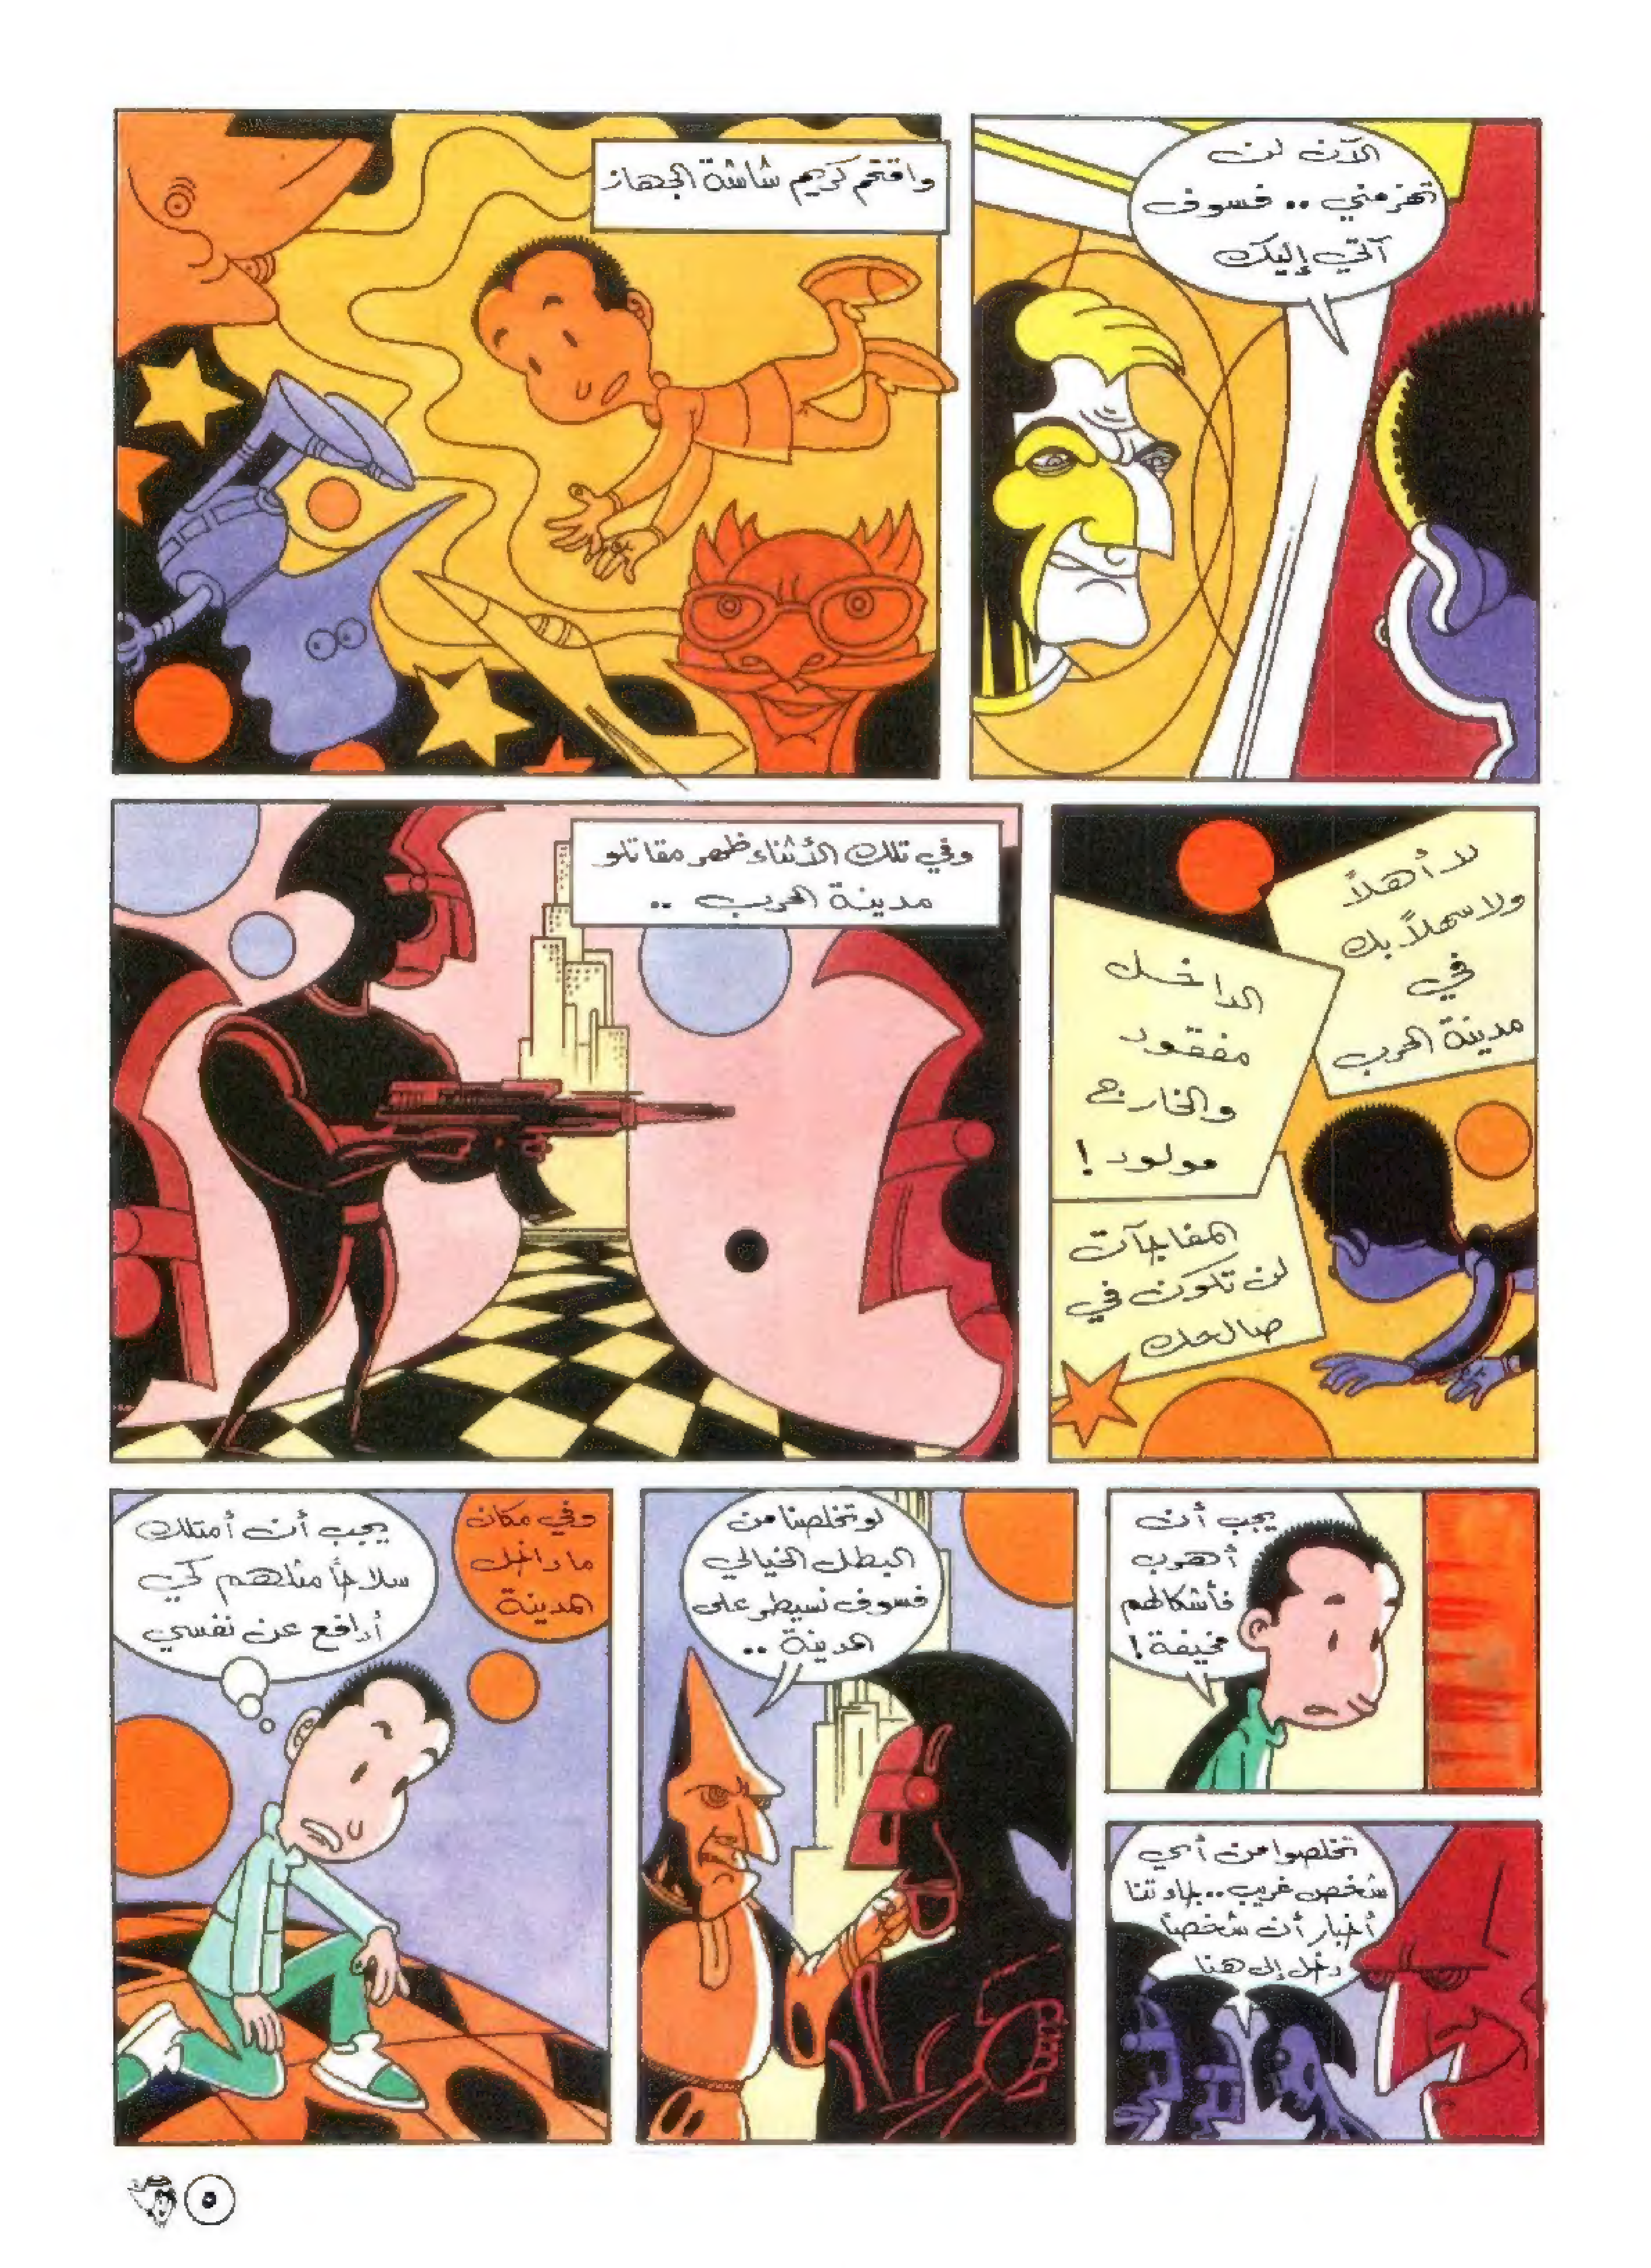 الآن لن
تهزمني .. فسوف
آتي إليك
واقتحم كريم شاشة الجهاز
لا أهلاً
ولا سهلاً بك
في
مدينة الحرب
الداخل
مفقود
والخارج
مولود !
المفاجآت
لن تكون في
صالحك
وفي تلك الأثناء ظهر مقاتلو
مدينة الحرب ..
يجب أن
أهرب
فأشكالهم
مخيفة !
تخلصوا من أي
شخص غريب .. جاءتنا
أخبار أن شخصاً
دخل إلى هنا
لو تخلصنا من
البطل الخيالي
فسوف نسيطر على
المدينة ..
وفي مكان
ما داخل
المدينة
يجب أن أمتلك
سلاحاً مثلهم كي
أدافع عن نفسي
٥